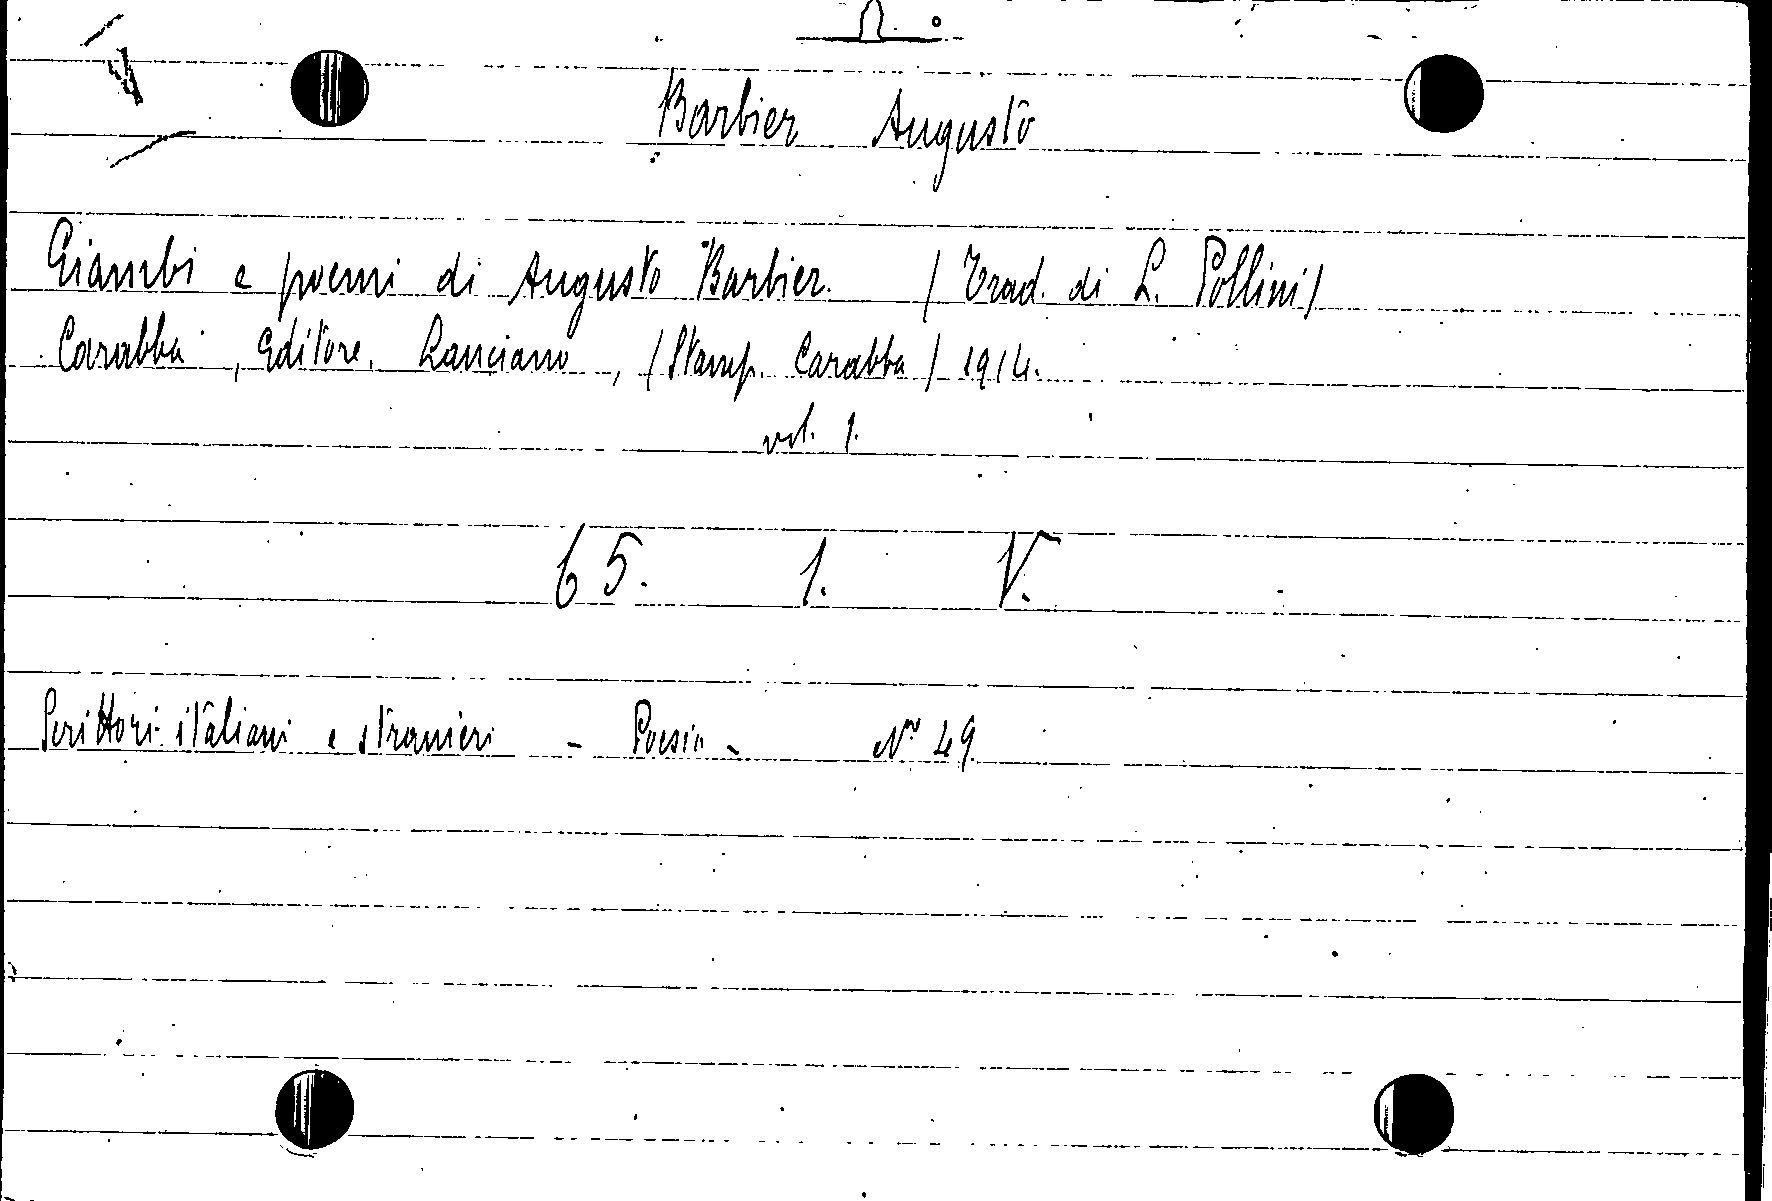 Barbier Augusto
Giambi e poemi di Augusto Barbier. / Trad. di L. Pollini /
Carabba, Editore. Lanciano, / Stamp. Carabba / 1914.
vol. 1.
65. 1. V.
Scrittori italiani e stranieri - Poesia - N° 49.